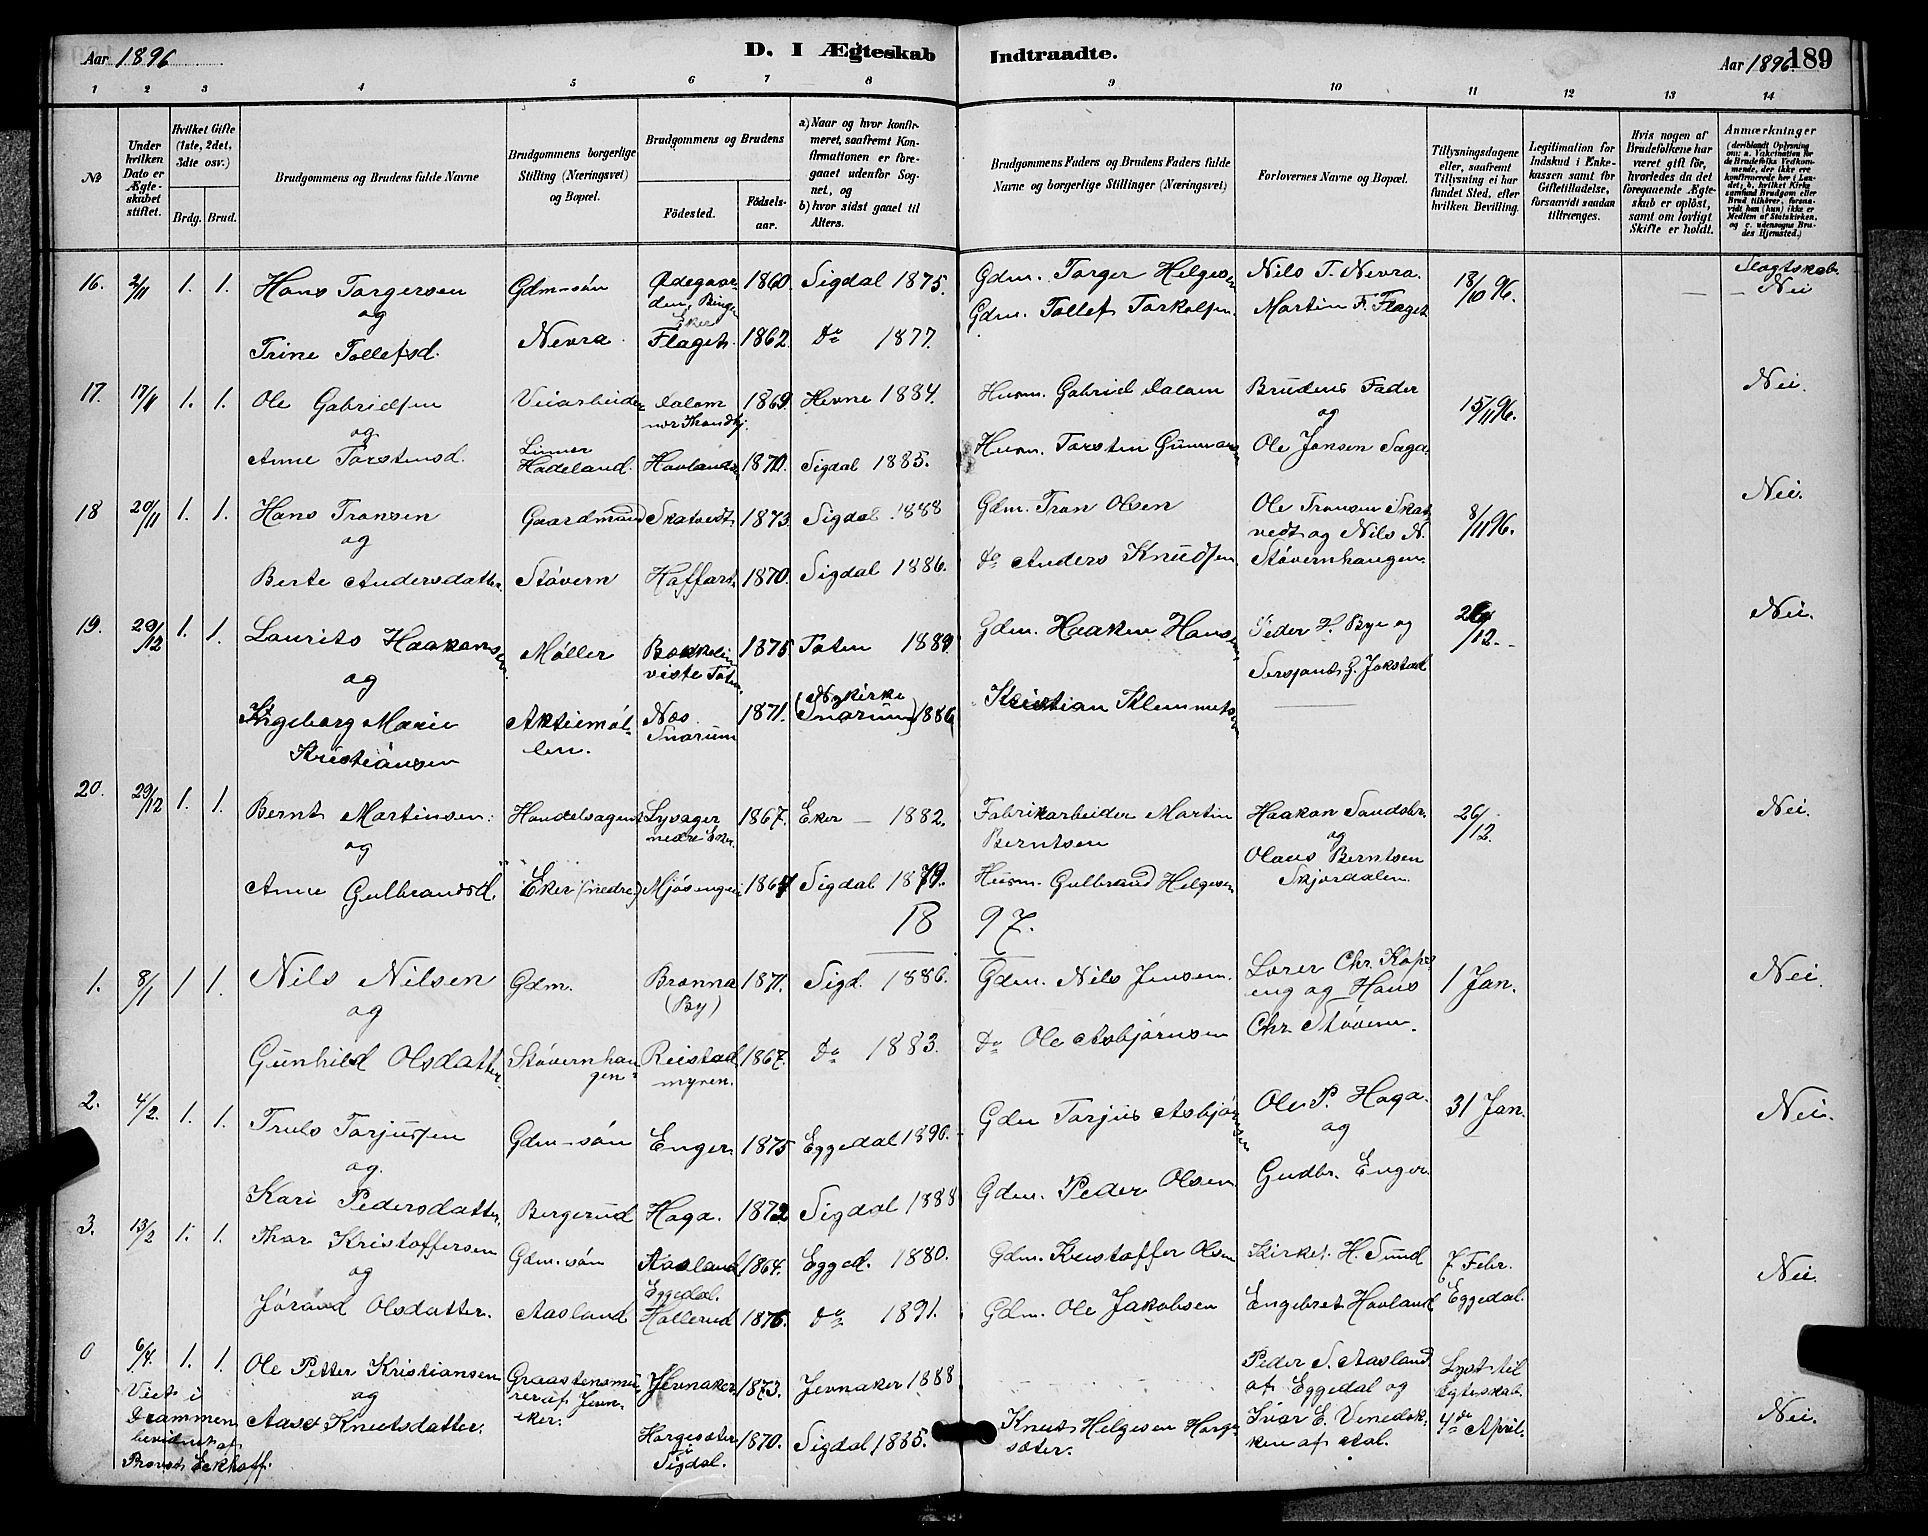 Aar 1896
D. I Ægteskab Indtraadte.
Aar 1896. 189
1 2 3 4 5 6 7 8 9 10 11 12 13 14
No
Under hvilken Dato er Ægteskabet stiftet.
Hvilket Gifte (1ste, 2det, 3die osv.)
Brdg. Brud.
Brudgommens og Brudens fulde Navne
Brudgommens borgerlige Stilling (Næringsvei) og Bopæl.
Brudgommens og Brudens
Fødested. Fødselsaar.
a) Naar og hvor konfirmeret, saafremt Konfirmationen er foregaaet udenfor Sognet, og
b) hvor sidst gaaet til Alters.
Brudgommens Faders og Brudens Faders fulde Navne og borgerlige Stillinger (Næringsvei)
Forlovernes Navne og Bopæl.
Tillysningsdagene eller, saafremt Tillysning ei har fundet Sted, efter hvilken Bevilling.
Legitimation for Indskud i Enkekassen samt for Giftetilladelse, forsaavidt saadan tiltrænges.
Hvis nogen af Brudefolkene har været gift før, hvorledes da det foregaaende Ægteskab er opløst, samt om lovligt Skifte er holdt.
Anmærkninger (deriblandt Oplysning om: a. Vakcination for de Brudefolks Vedkommende, der ikke ere konfirmerede her i Landet, b. hvilket Kirkesamfund Brudgom eller Brud tilhører, forsaavidt han (hun) ikke er Medlem af Statskirken, og c. udensogns Brudes Hjemsted.)
16. 2/11 1. 1. Hans Torgersen Gdm-søn Ødegaarden, Ringe Eker 1860 Sigdal 1875. Gdm. Torger Helgesen Nils T. Nevra. 18/10 96. Slagtskab. Nei
og
Trine Tollefsd. Nevra Flaget. 1862. Do 1877. Gdm. Tollef Torkelsen. Martin F. Flaget
17. 17/11 1. 1. Ole Gabrielsen Veiarbeider Dalom nor Thondhj. 1869. Hevne 1884. Husm. Gabriel Dalom Brudens Fader 15/11 96. Nei.
og og
Anne Torstensd. Linner Hadeland. Hovland 1870. Sigdal 1885. Husm. Torsten Gunnars Ole Jonsen Saga
18 20/11 1. 1. Hans Tronsen Gaardmand Skatvedt 1873. Sigdal 1888 Gdm. Tron Olsen Ole Tronsen Skatvedt og Nils N. 8/11 96. Nei.
og
Berte Andersdatter. Støvern Hoffart 1870. Sigdal 1886. Do Anders Knudsen Støvernhaugen
19. 29/12 1. 1. Laurits Haakensen Møller viste Toten 1875 Toten 1889 Gdm. Haaken Hansen Peder H. Bye og 26/12. Nei.
og Sersjant G. Jokstad
Ingeborg Marie Kristiansen Aktiemøllen. Næs Snarum 1871. (Nykirke Snarum) 1886 Kristian Klemmetsen
20. 29/12 1. 1. Bernt Martinsen. Handelsagent Lysager nedre Eker 1867. Eker – 1882. Fabrikarbeider Martin Berntsen Haakon Sandsbr. 26/12. Nei.
og og
Anne Gulbrandsd. Eker (nedre) Mjøsengen 1864 Sigdal 1879. Husm. Gulbrand Helgesen Olaus Berntsen Skjordalen.
1897.
1. 8/1 1 1. Nils Nilsen Gdm. Brønna (By) 1871. Sigd. 1886. Gdm. Nils Jensen. Lærer Chr. Kopseng og Hans 1 Jan. Nei.
og
Gunhild Olsdatter. Støvernhaugen Reistad myren. 1867. Do 1883. Do Ole Asbjørnsen Chr. Støvern.
2. 4/2. 1. 1. Truls Torjussen Gdm-søn Enger 1875 Eggedal 1890. Gdm Torjus Asbjørnsen Ole P. Haga. 31 Jan. Nei.
og og
Kari Pedersdatter. Bergerud Haga. 1872 Sigdal 1888 Gdm. Peder Olsen Gudbr. Enger
3. 13/2 1. 1. Thor Kristoffersen Gdm.-søn Aasland Eggedal. 1864. Egged. 1880. Gdm. Kristoffer Olsen Kirket. H. Sund 7 Febr. Nei.
og
Jørand Olsdatter. Aasland Hollerud 1876. Do 1891. Gdm. Ole Jakobsen Engebret Hovland Eggedal.
0 6/4. 1. 1. Ole Petter Kristiansen Graastensmurer af Jevnaker. Jevnaker 1873. Jevnaker 1888 Peder S. Aasland af Eggedal og Lyst til Egteskab. Nei.
Viet i og
Drammen Aase Knutsdatter. Horgesæter i Sigdal. 1870. Sigdal 1885. Knut Helgesen Horgesæter. Ivar E. Venedokken af Aal. 4de April.
bevidnet af
Provst Eckhoff.